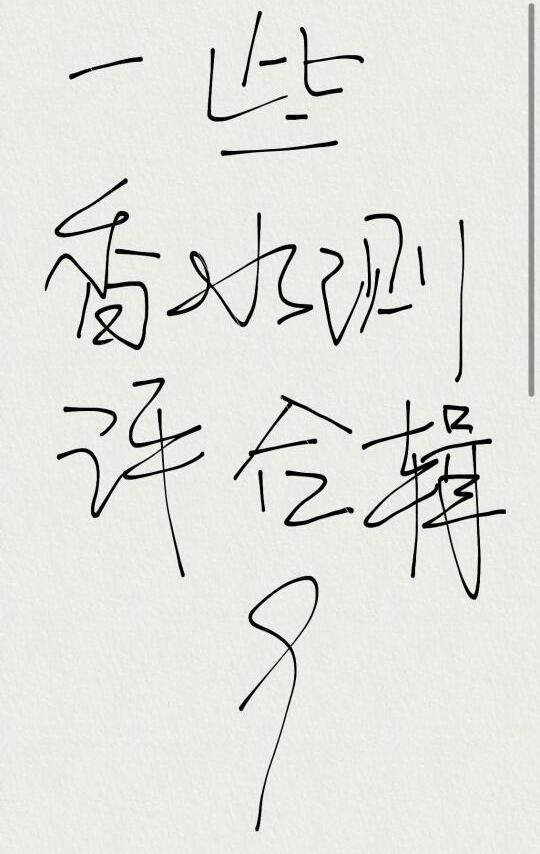 一些
香水测
评合辑